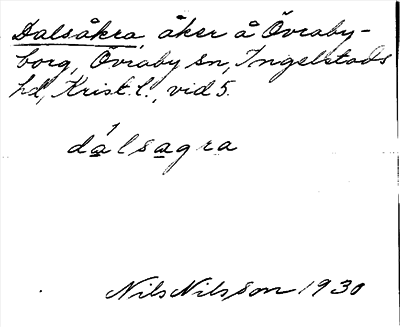 Dalsåkra, åker å Övraby-
borg, Övraby sn, Ingelstads
hd, Krist. l., vid 5.
dálsagra
Nils Nilsson 1930